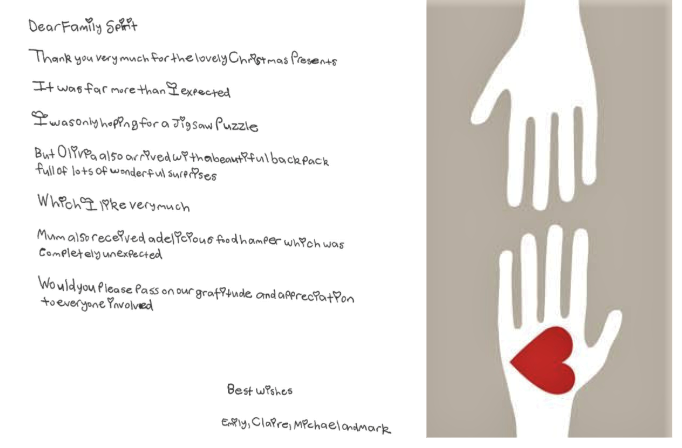 Dear Family Spirit
Thank you very much for the lovely Christmas Presents
It was far more than I expected
I was only hoping for a Jigsaw Puzzle
But Olivia also arrived with a beautiful back pack
full of lots of wonderful surprises
Which I like very much
Mum also received a delicious food hamper which was
completely unexpected
Would you Please Pass on our gratitude and appreciation
to everyone involved
Best wishes
Emily, Claire, Michael and mark